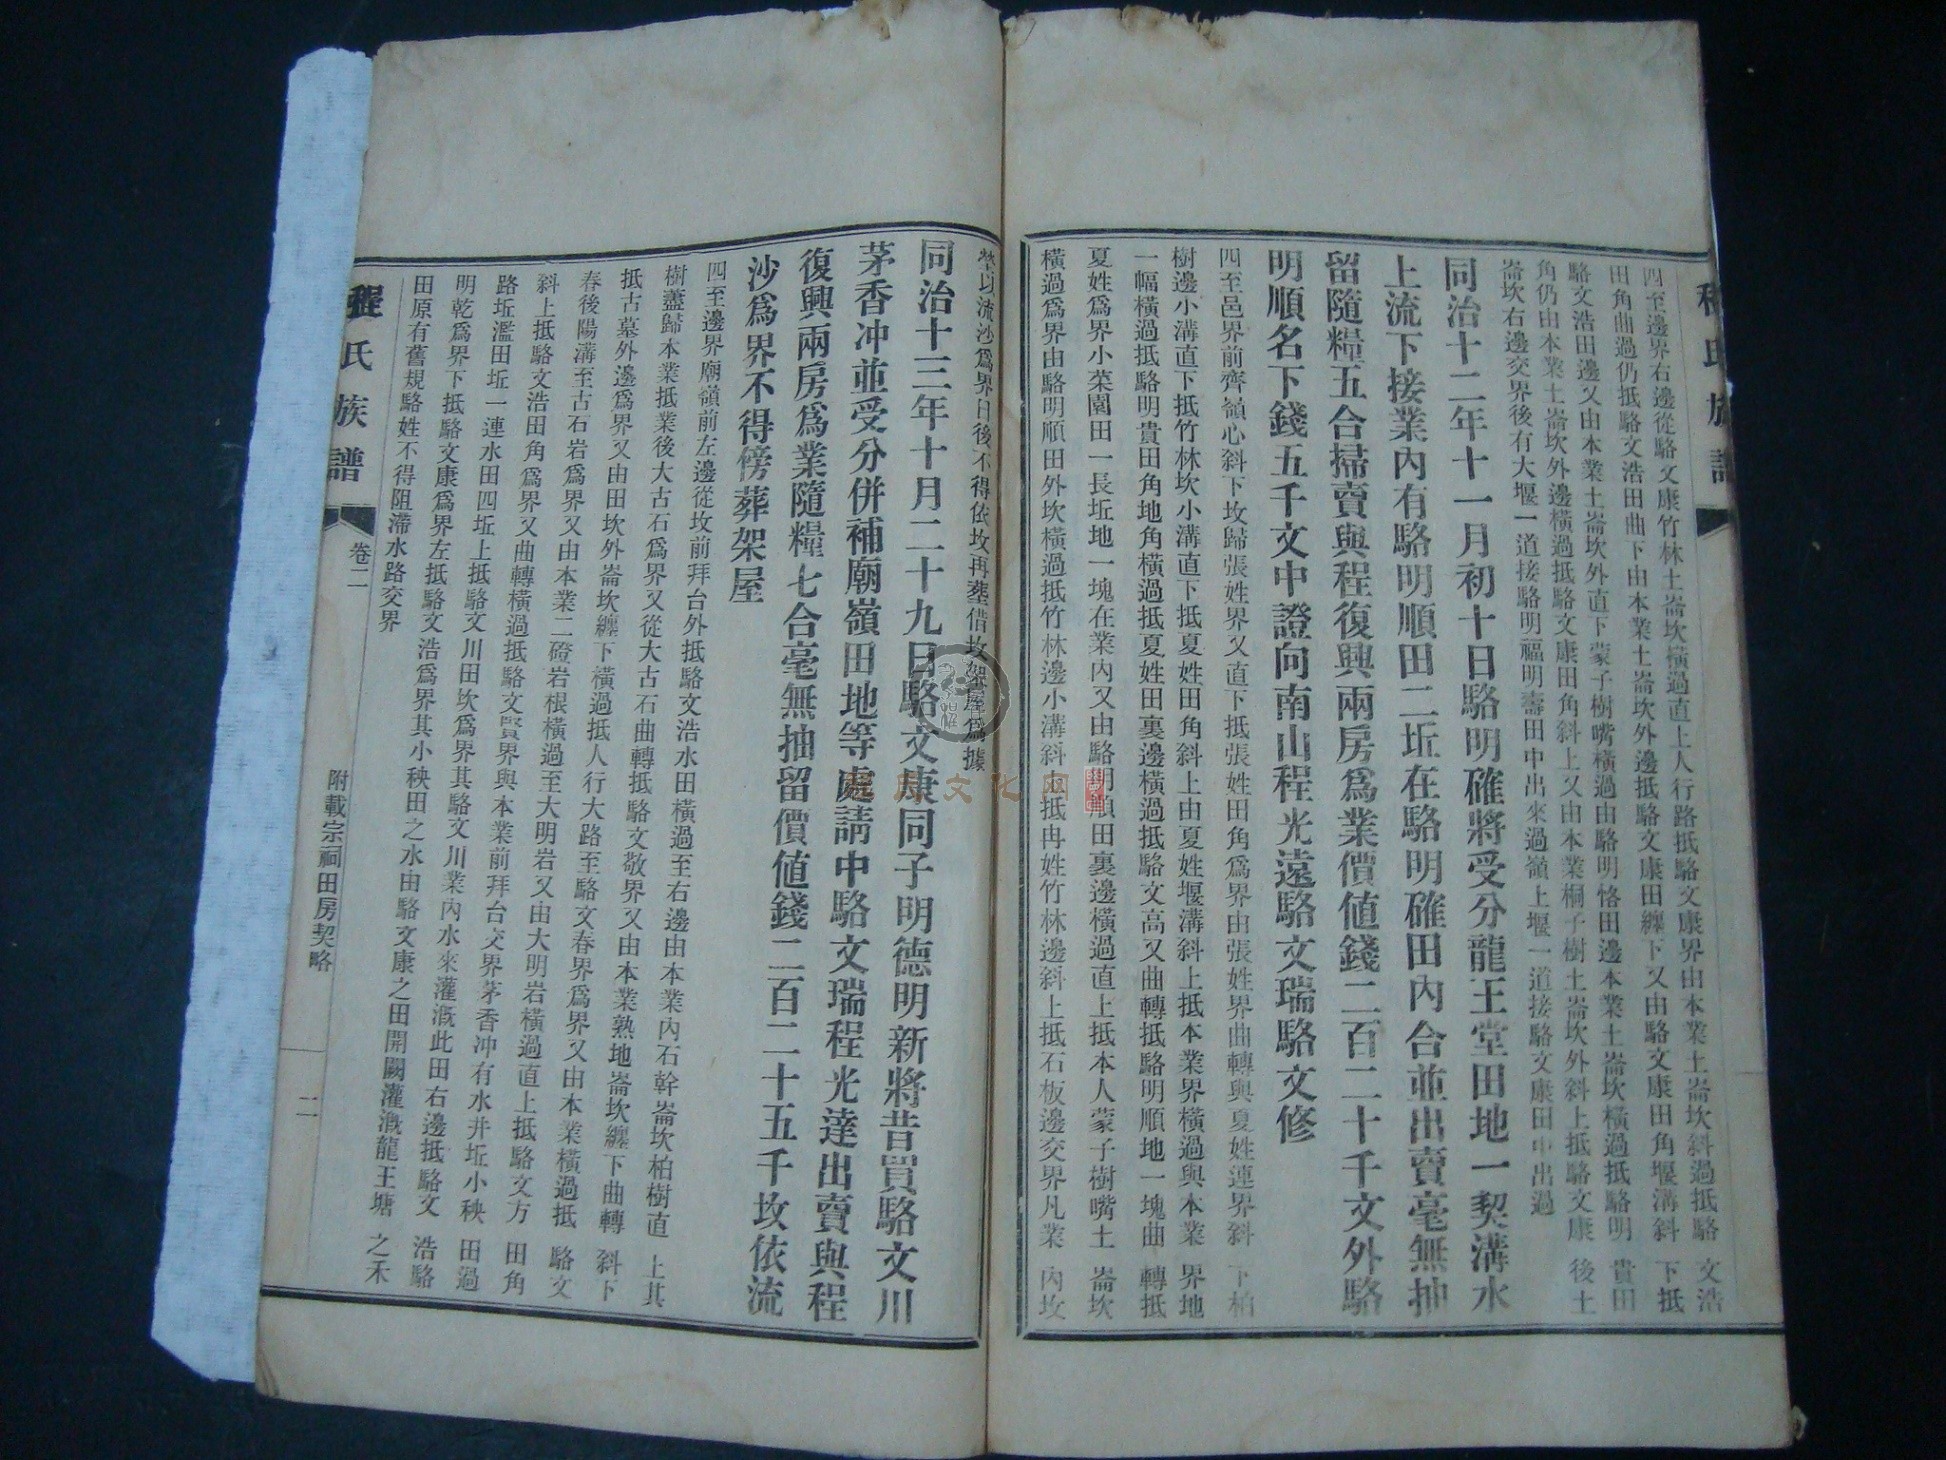 四至邊界右邊從駱文康竹林土崙坎橫過直上人行路抵駱文康界由本業土崙坎斜過抵駱文浩
田角曲過仍抵駱文浩田曲下由本業土崙坎外邊抵駱文康田纏下又由駱文康田角堰溝斜下抵
駱文浩田邊又由本業土崙坎外直下蒙子樹嘴橫過由駱明恪田邊本業土崙坎橫過抵駱明貴田
角仍由本業土崙坎外邊橫過抵駱文康田角斜上又由本業桐子樹土崙坎外斜上抵駱文康後土
崙坎右邊交界後有大堰一道接駱明福明壽田中出來過嶺上堰一道接駱文康田中出過
同治十二年十一月初十日駱明確將受分龍王堂田地一契溝水
上流下接業內有駱明順田二坵在駱明確田內合並出賣毫無抽
留隨糧五合掃賣與程復興兩房爲業價值錢二百二十千文外駱
明順名下錢五千文中證向南山程光遠駱文瑞駱文修
四至邑界前齊嶺心斜下坟歸張姓界又直下抵張姓田角爲界由張姓界曲轉與夏姓連界斜下柏
樹邊小溝直下抵竹林坎小溝直下抵夏姓田角斜上由夏姓堰溝斜上抵本業界橫過與本業界地
一幅橫過抵駱明貴田角地角橫過抵夏姓田裏邊橫過抵駱文高又曲轉抵駱明順地一塊曲轉抵
夏姓爲界小菜園田一長坵地一塊在業內又由駱明順田裏邊橫過直上抵本人蒙子樹嘴土崙坎
橫過爲界由駱明順田外坎橫過抵竹林邊小溝斜上抵冉姓竹林邊斜上抵石板邊交界凡業內坟
塋以流沙爲界日後不得依坟再塟借坟架屋爲據
同治十三年十月二十九日駱文康同子明德明新將昔買駱文川
茅香冲並受分併補廟嶺田地等處請中駱文瑞程光達出賣與程
復興兩房爲業隨糧七合毫無抽留價值錢二百二十五千坟依流
沙爲界不得傍葬架屋
四至邊界廟嶺前左邊從坟前拜台外抵駱文浩水田橫過至右邊由本業內石幹崙坎柏樹直上其
樹蓋歸本業抵業後大古石爲界又從大古石曲轉抵駱文敬界又由本業熟地崙坎纏下曲轉斜下
抵古墓外邊爲界又由田坎外崙坎纏下橫過抵人行大路至駱文春界爲界又由本業橫過抵駱文
春後陽溝至古石岩爲界又由本業二磴岩根橫過至大明岩又由大明岩橫過直上抵駱文方田角
斜上抵駱文浩田角爲界又曲轉橫過抵駱文賢界與本業前拜台交界茅香冲有水井坵小秧田過
路坵濫田坵一連水田四坵上抵駱文川田坎爲界其駱文川業內水來灌溉此田右邊抵駱文浩駱
明乾爲界下抵駱文康爲界左抵駱文浩爲界其小秧田之水由駱文康之田開闕灌溉龍王塘之禾
田原有舊規駱姓不得阻滯水路交界
氏族譜
卷二
附載宗祠田房契略
二